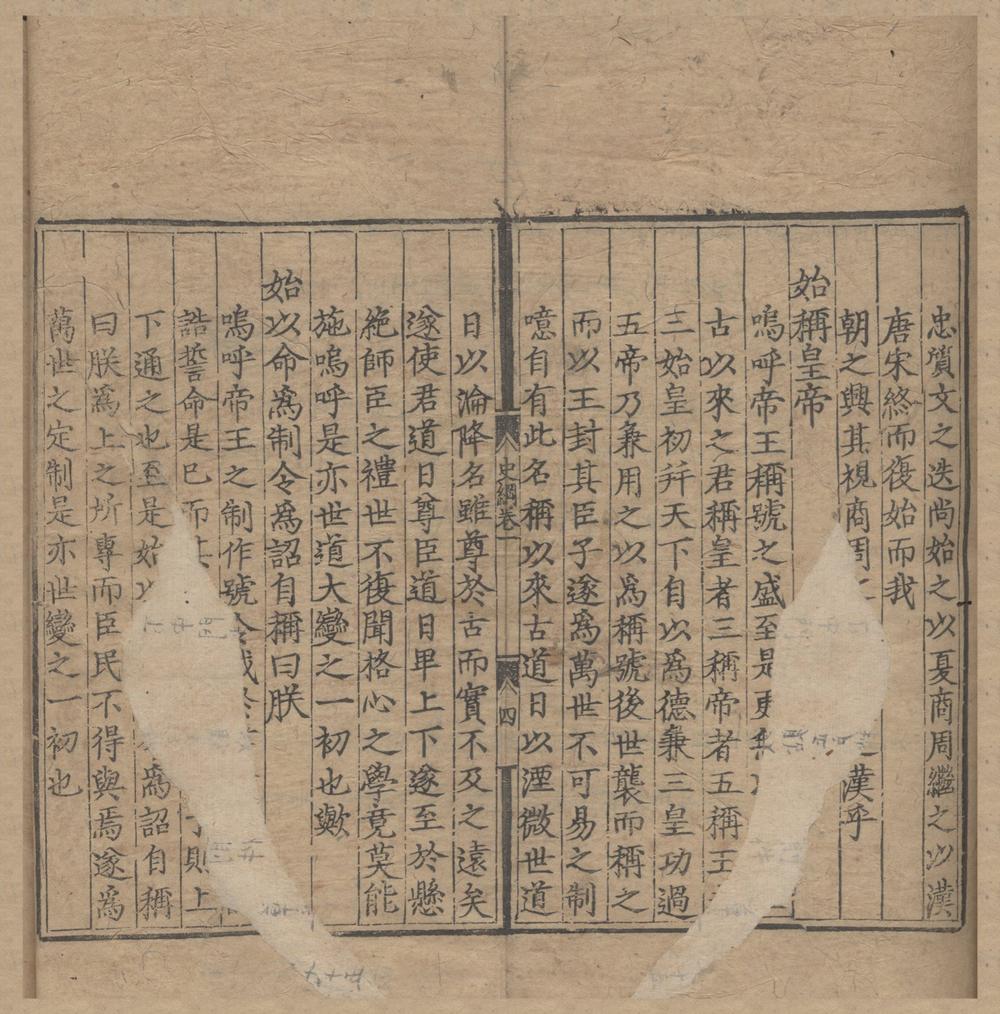 忠質文之迭尚始之以夏商周繼之以漢
唐宋終而復始而我
朝之興其視商周漢乎
始稱皇帝
嗚呼帝王稱號之盛至是
古以來之君稱皇者三稱帝者五稱王
三始皇初幷天下自以爲德兼三皇功過
五帝乃兼用之以爲稱號後世襲而稱之
而以王封其臣子遂爲萬世不可易之制
噫自有此名稱以來古道日以湮微世道
史綱卷一
四
日以淪降名雖尊於古而實不及之遠矣
遂使君道日尊臣道日卑上下遂至於懸
絶師臣之禮世不復聞格心之學竟莫能
施嗚呼是亦世道大變之一初也歟
始以命爲制令爲詔自稱曰朕
嗚呼帝王之制作號令
誥誓命是已而則上
下通之也至是始爲詔自稱
曰朕爲上之所專而臣民不得與焉遂爲
萬世之定制是亦世變之一初也